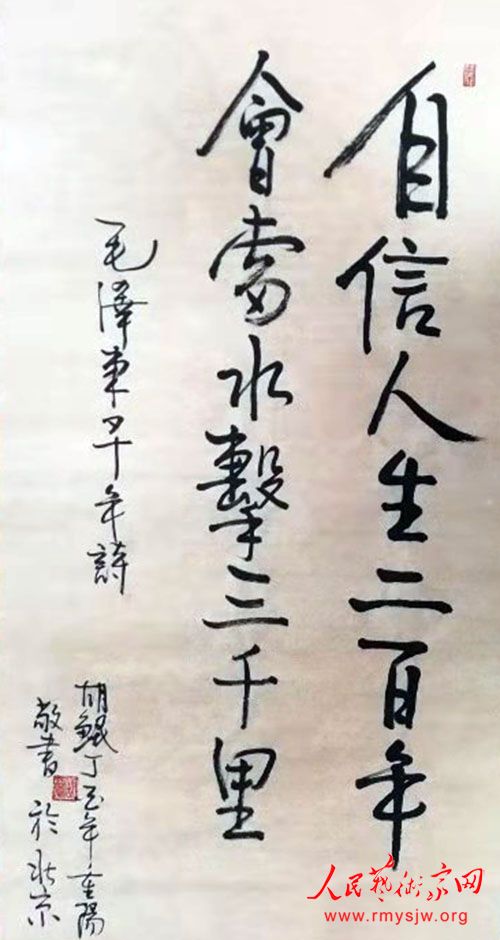 自信人生二百年
會當水擊三千里
毛澤東早年詩
胡 丁酉年重陽
敬書於北京
人民藝術家网
www.rmysjw.org